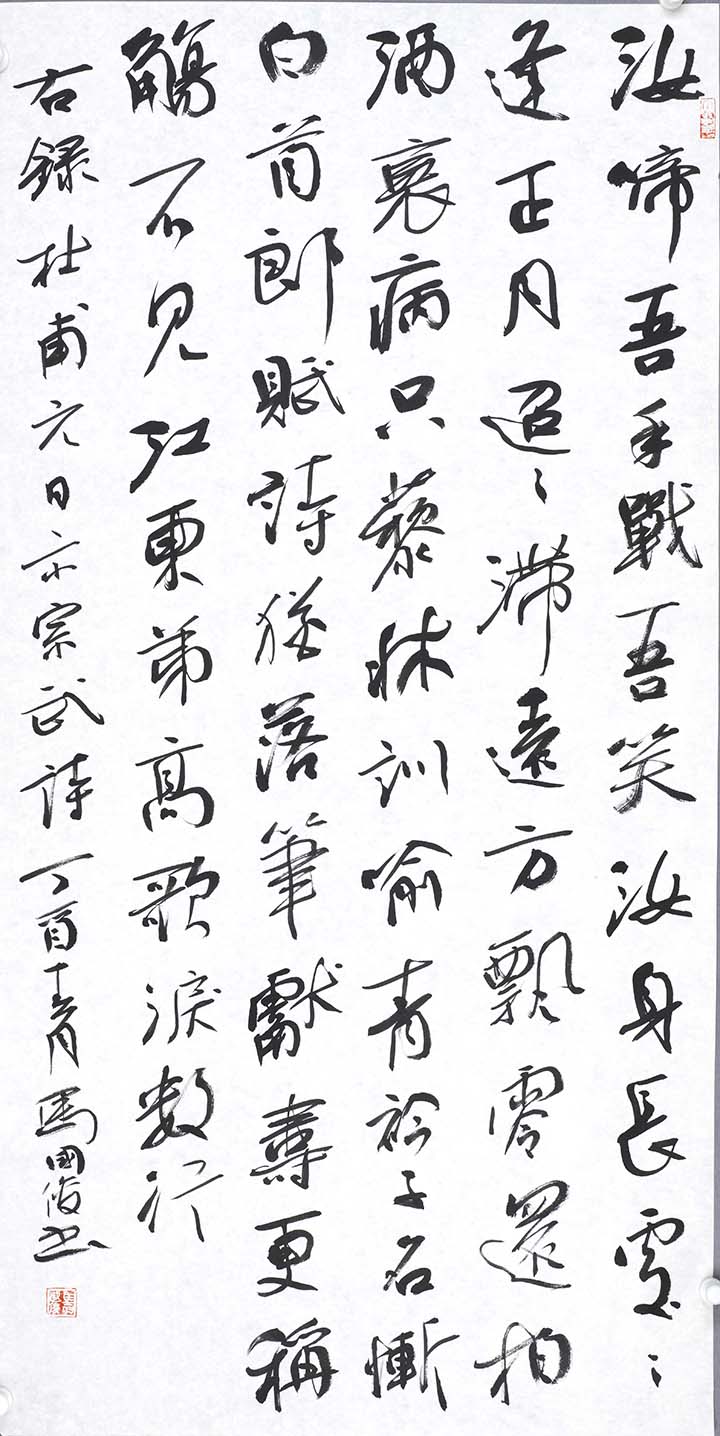 汝啼吾手戰吾笑汝身長處〻
逢正月迢〻滯遠方飄零還柏
酒衰病只藜牀訓喻青衿子名慚
白首郎賦詩猶落筆獻壽更稱
觴不見江東弟高歌淚数行
右録杜甫元日示宗武詩丁酉十二月馬國俊书